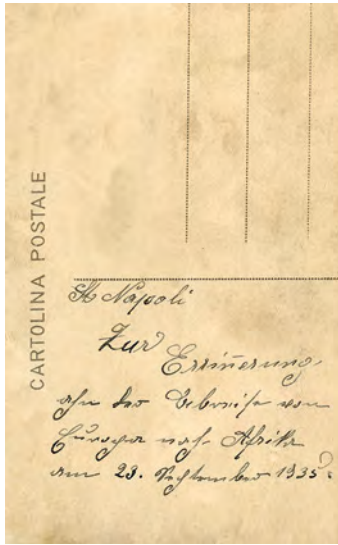 CARTOLINA POSTALE
St Napoli
Zur
Erinnerung
ahn der Uebereise von
Europa nach Afrika
am 23. September 1935.